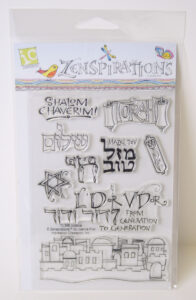 ZENSPIRATIONS
SHALOM
CHAVERIM!
TORAH
שלום
MAZEL TOV
מזל
טוב
L'DOR V'DOR
לדור ודור
FROM
GENERATION
TO GENERATION